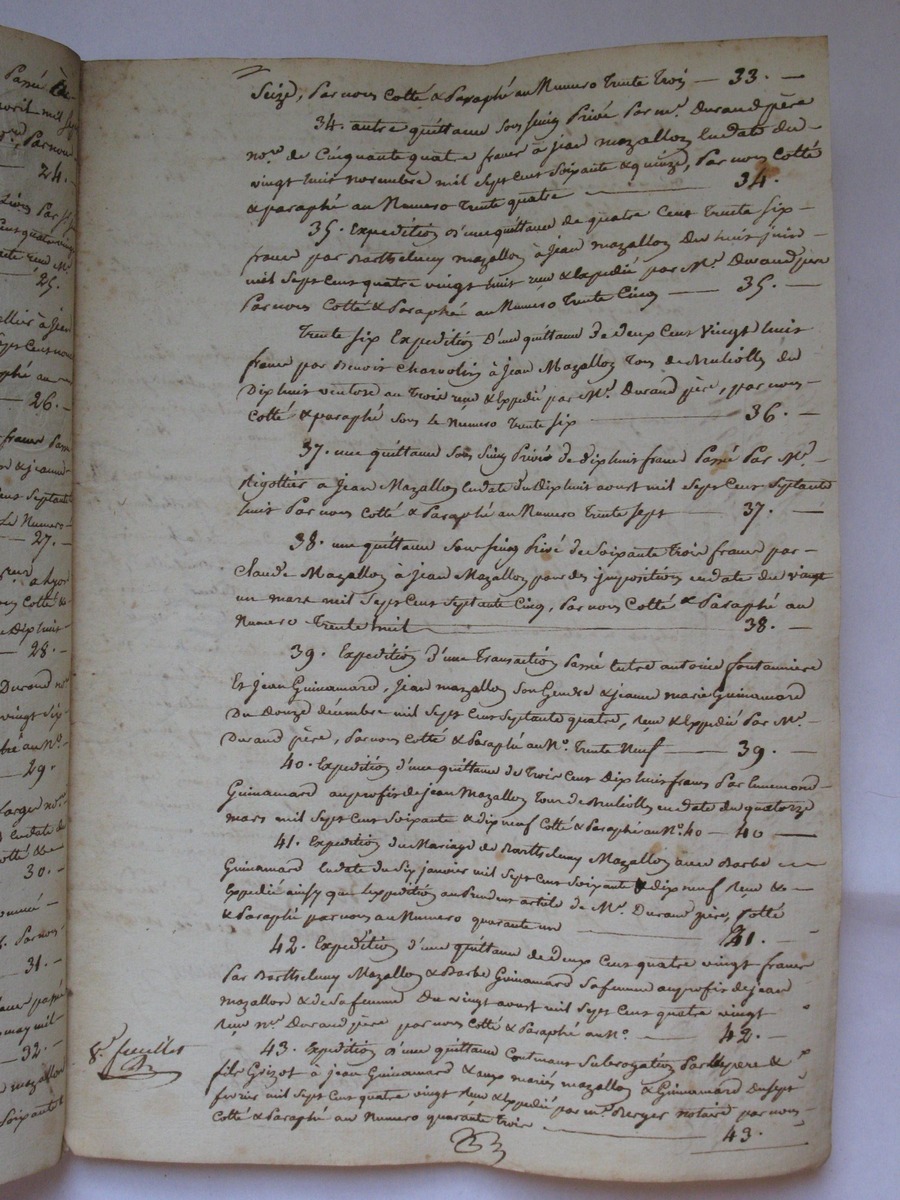 Passé à
avril mil sept
Par nous
24. —
cent quatre vingt
25.
à Jean
Sept Cent
au
26. —
franc Passé
& jeanne
Cent Septante
Le Numero
27. —
a lyon
Cotté &
Dixhuit
28. —
Durand no.re
vingt six
au N.o
29. —
Larger no.re
en date du
cotté &
30. —
Par nous
31. —
passé
may mil
32. —
mazallon
Soixante &
Seize, Par nous Cotté & Paraphé au Numero Trente Trois — 33. —
34. autre quittance Sous Seing Privé Par m.e Durand père
no.re de Cinquante quatre francs à jean mazallon en date du
vingt huit novembre mil Sept Cent Soixante & quinze, Par nous Cotté
& paraphé au Numero Trente quatre — 34. —
35. Expedition d'une quittance de quatre Cent Trente Six
francs par Barthelemy mazallon à Jean mazallon du huit juin
mil Sept Cent quatre vingt huit reçu & Expedié par M.e Durand père
Par nous Cotté & Paraphé au Numero Trente Cinq — 35. —
Trente Six Expedition d'une quittance de deux Cent Vingt huit
francs par Benoit Charvolin à Jean Mazallon du
Dixhuit ventose an Trois reçu & Expedié par M.e Durand père, par nous
Cotté & paraphé Sous le Numero Trente Six — 36. —
37. une quittance Sous Seing Privé de dixhuit francs Passé Par M.e
Rigottier à Jean Mazallon en date du Dixhuit aoust mil Sept Cent Septante
huit Par nous Cotté & Paraphé au Numero Trente Sept — 37. —
38. une quittance Sous Seing Privé de Soixante Trois francs par
Claude Mazallon à Jean Mazallon pour des impositions en date du vingt
un mars mil Sept Cent Septante Cinq, Par nous Cotté & Paraphé au
Numero Trente huit — 38. —
39. Expedition d'une Transaction Passé Entre antoine fontanniere
Et Jean Guinamard, Jean mazallon Son Gendre & jeanne marie Guinamard
Du Douze décembre mil Sept Cent Septante quatre, Reçu & Expedié Par M.e
Durand père, Par nous Cotté & Paraphé au N.o Trente Neuf — 39. —
40. Expedition d'une quittance de Trois Cent Dixhuit francs Par Ennemond
Guinamard au profit de Jean Mazallon en date du quatorze
mars mil Sept Cent Soixante & dix neuf Cotté & Paraphé au N.o 40 — 40 —
41. Expedition du Mariage de Barthelemy Mazallon avec Barbe
Guinamard en date du Six janvier mil Sept Cent Soixante & dix neuf Reçu &
Expedié ainsy que l'expedition au Précedent article de M.e Durand père, Cotté
& Paraphé par nous au Numero quarante un — 41. —
42. Expedition d'une quittance de Deux Cent quatre vingt francs
Par Barthelemy Mazallon & Barbe Guinamard Sa femme au profit de jean
mazallon & de Sa femme Du vingt aoust mil Sept Cent quatre vingt
Reçu M.e Durand père par nous Cotté & Paraphé au N.o — 42. —
8.e feuillet
43. Expedition d'une quittance Contenant Subrogation Par les père &
fils Grizot à Jean Guinamard & aux mariés mazallon & Guinamard du Sept
fevrier mil Sept Cent quatre vingt Reçu & Expedié par m.e Berger notaire par nous
Cotté & Paraphé au Numero quarante Trois — 43. —